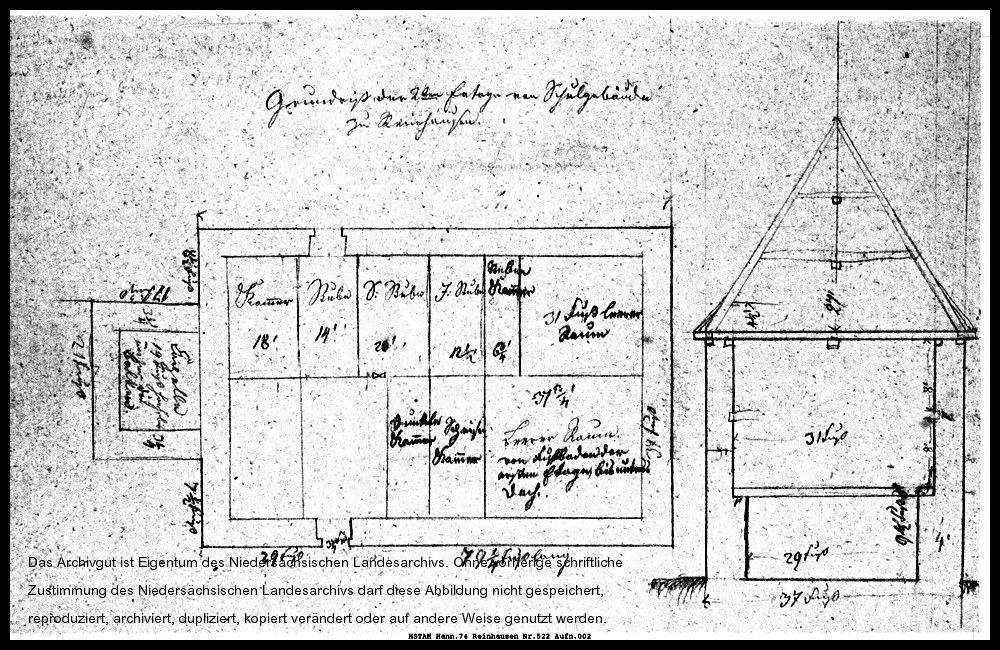 Grundriß der 2ten Etage von Schulgebäude
zu Reinhausen.
17 Fuß
21 Fuß
Kamer
18'
Stube
14'
S. Stube
20'
J. Stube
12 1/2
Stuben
Kamer
31 Fuß leerer
Raum
Dunkle
Kamer
Speise
Kamer
Leerer Raum
von Fußboden der
ersten Etage, bis unters
Dach.
31 Fuß
29 Fuß
4'
37 Fuß
29 Fuß
79 1/4 Fuß lang
Das Archivgut ist Eigentum des Niedersächsischen Landesarchivs. Ohne vorherige schriftliche
Zustimmung des Niedersächsischen Landesarchivs darf diese Abbildung nicht gespeichert,
reproduziert, archiviert, dupliziert, kopiert verändert oder auf andere Weise genutzt werden.
HSTAH Hann.74 Reinhausen Nr.522 Aufn.002